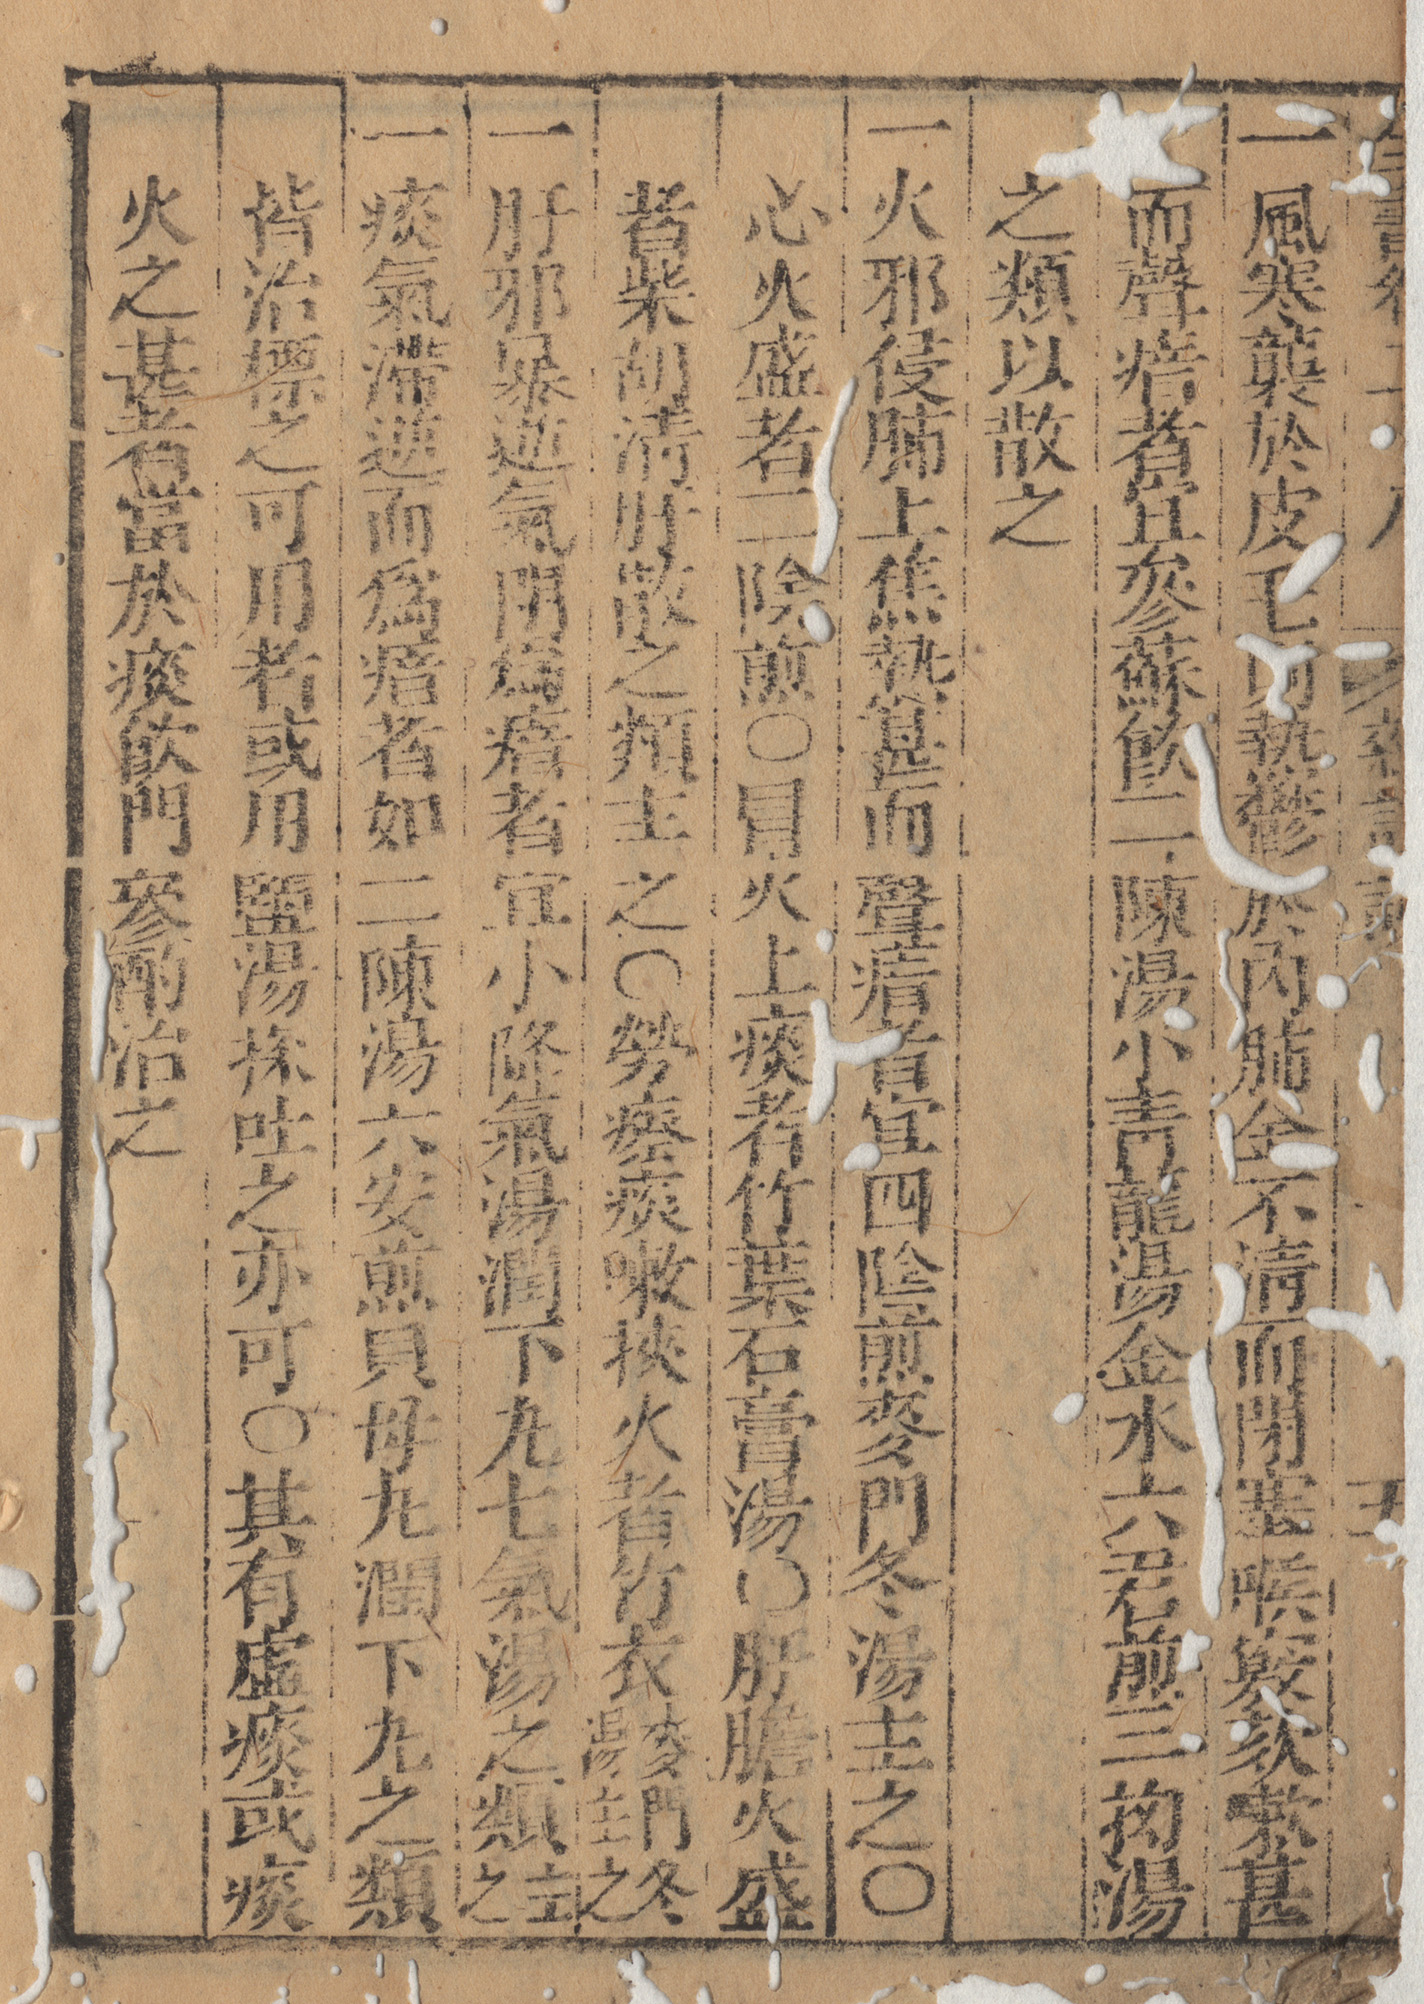 一風寒襲於皮毛而熱鬱於內肺金不清而閉塞喉竅欬嗽甚
而聲瘖者宜參蘇飲二陳湯小青龍湯金水六君煎三拗湯
之類以散之
一火邪侵肺上焦熱甚而聲瘖者宜四陰煎麥門冬湯主之〇
心火盛者二陰煎〇胃火上痰者竹葉石膏湯〇肝膽火盛
者柴胡清肝散之類主之〇勞瘵痰嗽挾火者竹衣麥門冬湯主之
一肝邪暴逆氣閉爲瘖者宜小降氣湯潤下丸七氣湯之類主之
一痰氣滯逆而爲瘖者如二陳湯六安煎貝母丸潤下丸之類
皆治標之可用者或用鹽湯探吐之亦可〇其有虛痰或痰
火之甚者當於痰飲門參酌治之